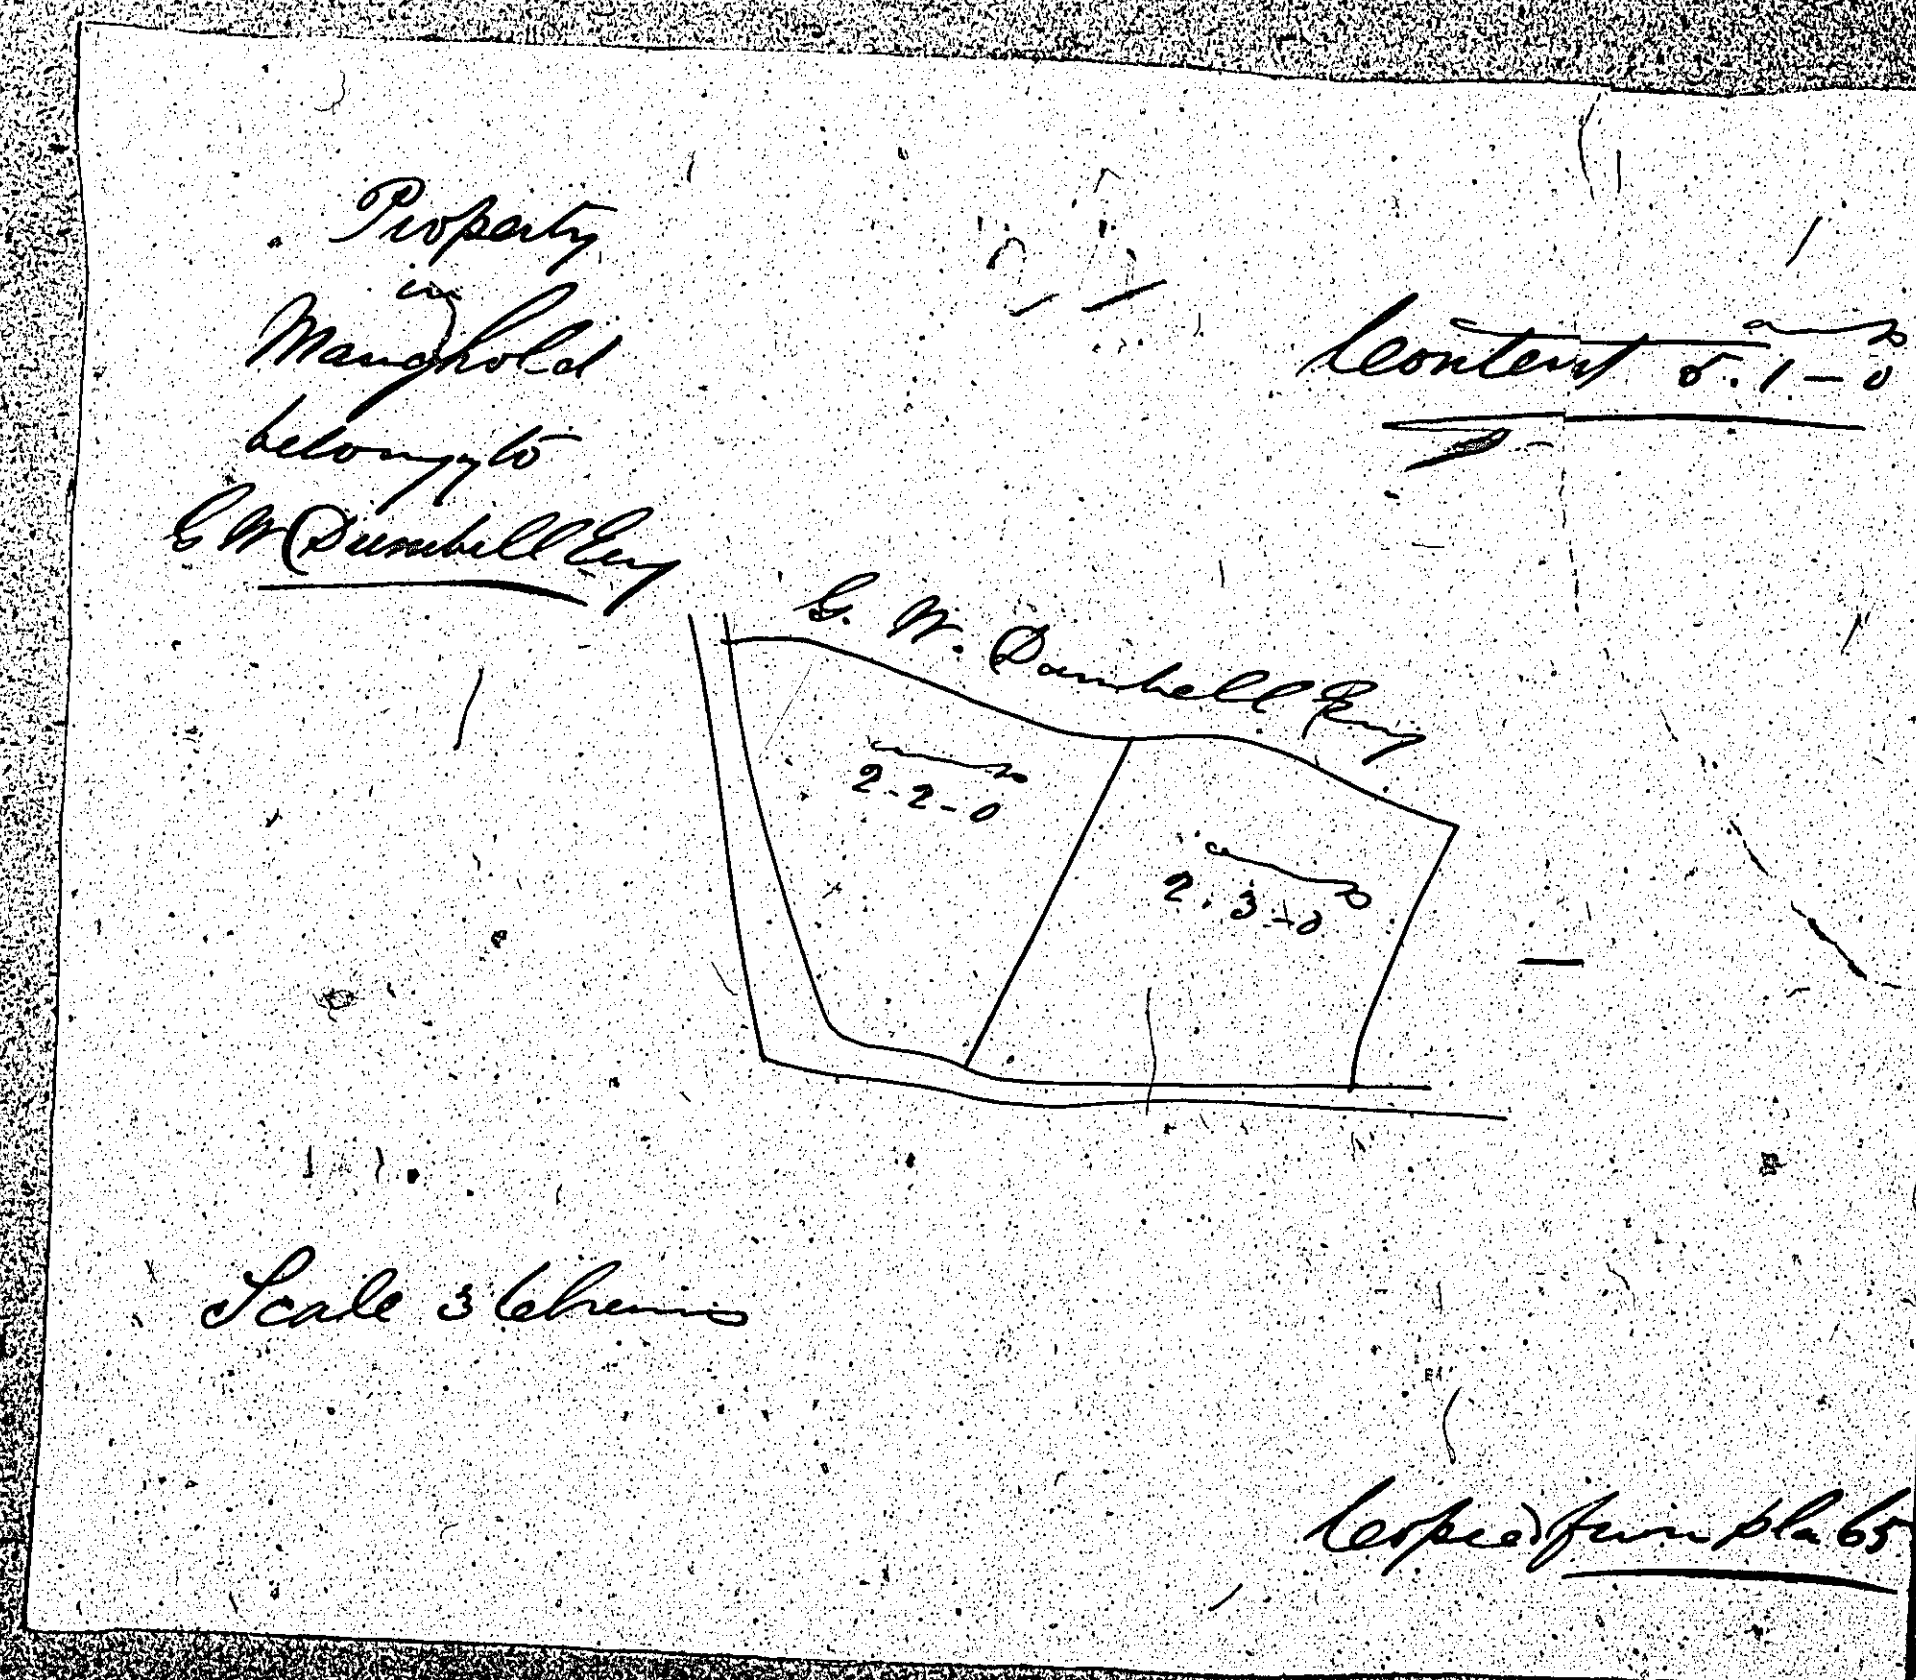 Property
in
Maughold
belongg to
G W Dumbell Esq
Content 5. 1 - 0
G. W. Dumbell Esq
2 - 2 - 0
2. 3 - 0
Scale 3 Chains
Copied from pla 65